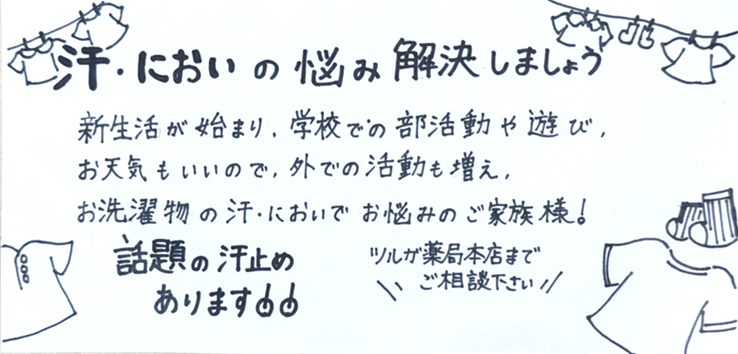 汗・においの悩み解決しましょう
新生活が始まり、学校での部活動や遊び、
お天気もいいので、外での活動も増え、
お洗濯物の汗・においでお悩みのご家族様!
話題の汗止め
あります
ツルガ薬局本店まで
ご相談下さい